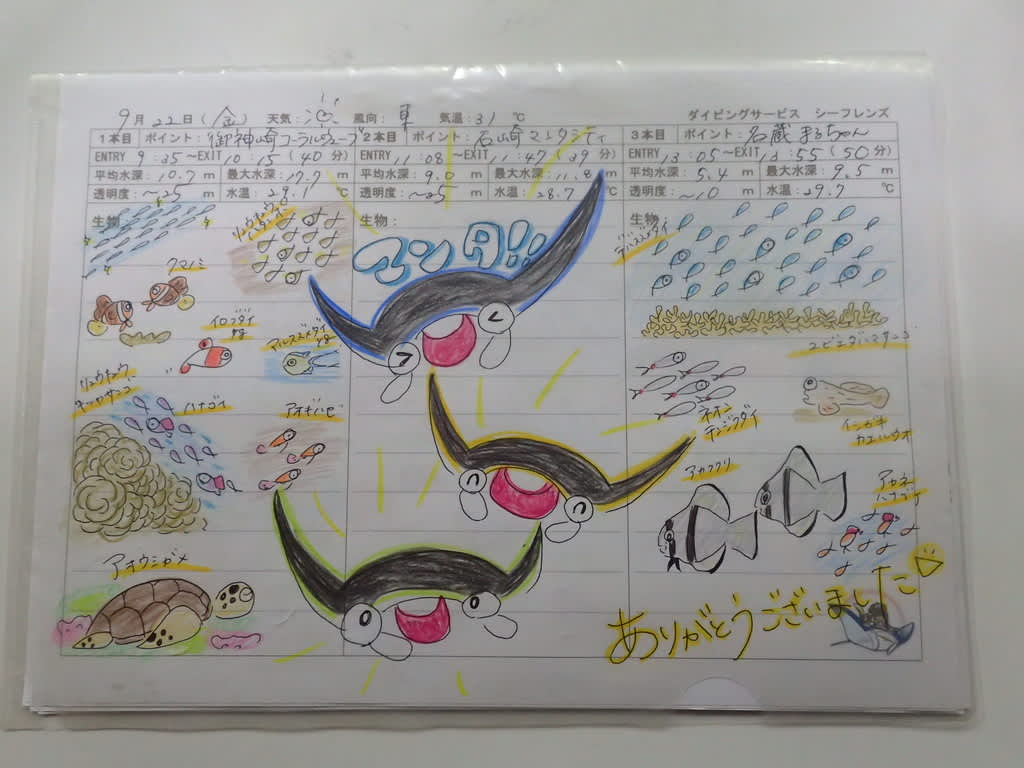 9月22日(金) 天気: 風向: 気温:31 ℃ ダイビングサービス シーフレンズ
1本目 ポイント: 御神崎コーラルジュエリーブ 2本目 ポイント: 石崎マンタシティ 3本目 ポイント: 名蔵まるちゃん
ENTRY 9:35~EXIT 10:15(40分) ENTRY 11:08~EXIT 11:47(39分) ENTRY 13:05~EXIT 13:55(50分)
平均水深:10.7 m 最大水深:17.7 m 平均水深:9.0 m 最大水深:11.8 m 平均水深:5.4 m 最大水深:9.5 m
透明度:~25 m 水温:29.1 ℃ 透明度:~25 m 水温:28.7 ℃ 透明度:~10 m 水温:29.7 ℃
生物: 生物: 生物:
マンタ!!
クマノミ
イロブダイ
yg
yg
リュウキュウ
キッカサンゴ
ハナゴイ
アオギハゼ
アオウミガメ
デバスズメダイ
ユビエダハマサンゴ
ネオン
テンジクダイ
インドカエルウオ
アカククリ
アカネ
ハナゴイ
ありがとうございました